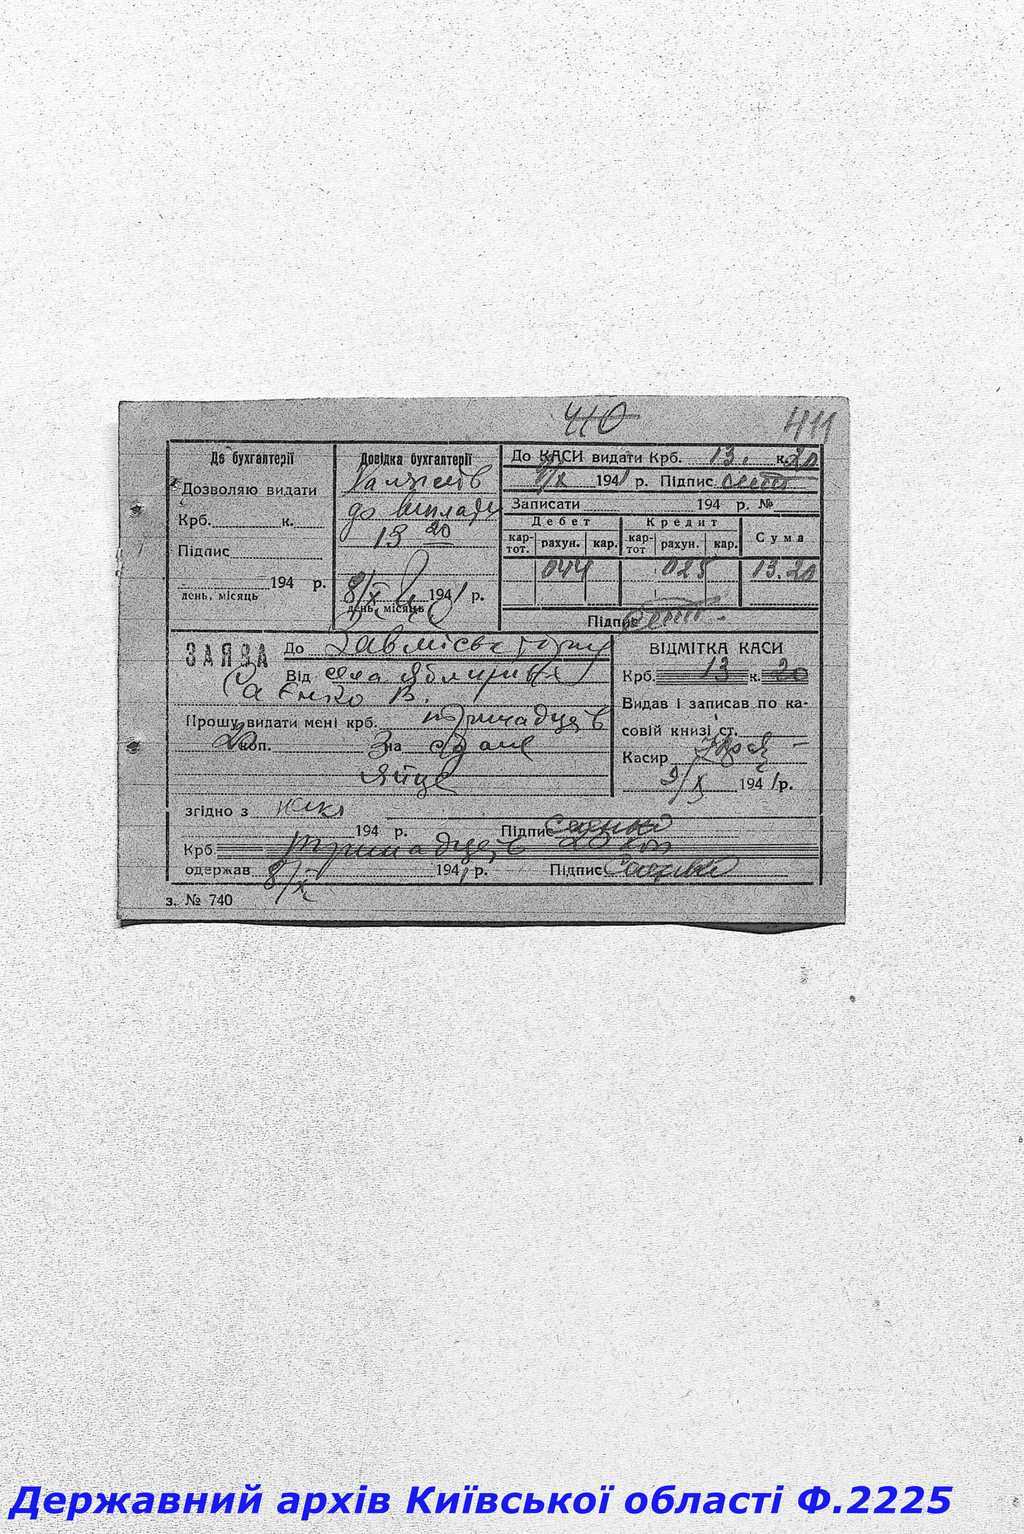 410 411
До бухгалтерії
Дозволяю видати
Крб. к.
Підпис
194 р.
день, місяць
Довідка бухгалтерії
Належить
до виплати
13 20
8/X 1941 р.
день, місяць
До КАСИ видати Крб. 13. к. 20
8/X 1941 р. Підпис
Записати 194 р. №
Дебет Кредит Сума
кар-тот. рахун. кар. кар-тот рахун. кар.
044 025 13.20
Підпис
ЗАЯВА До
Від села
Саєнко В.
Прошу видати мені крб. тринадцять
20 коп. На здане
яйце
ВІДМІТКА КАСИ
Крб. 13 к. 20
Видав і записав по ка-
совій книзі ст.
Касир
9/X 1941 р.
згідно з
194 р. Підпис Саєнко
Крб. тринадцять 20 коп
одержав 8/X 1941 р. Підпис Саєнко
з. № 740
Державний архів Київської області Ф.2225